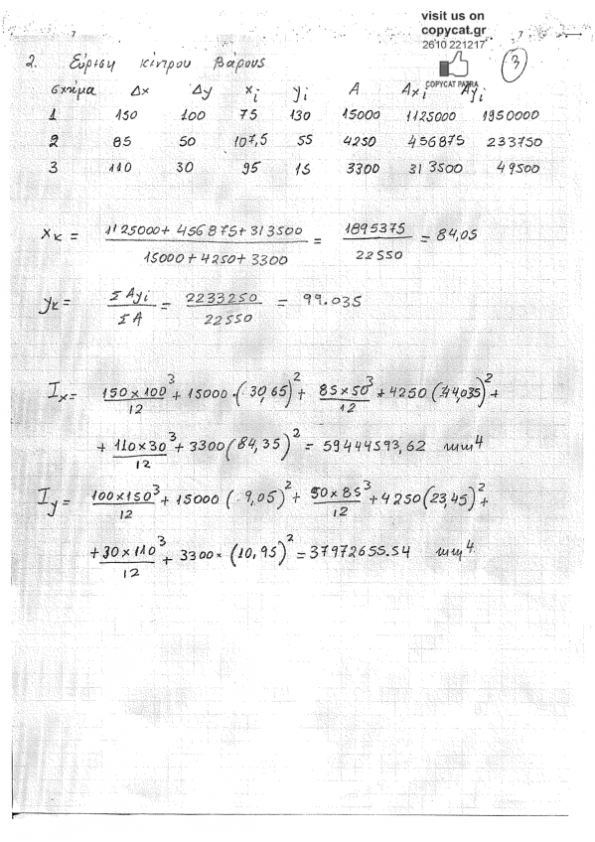 visit us on
copycat.gr
2610 221217
COPYCAT PATRA
3
2. Εύριση κέντρου βάρους
σχήμα Δx Δy xi yi A Axi Ayi
1 150 100 75 130 15000 1125000 1950000
2 85 50 107,5 55 4250 456875 233750
3 110 30 95 15 3300 313500 49500
xκ = (1125000 + 456875 + 313500) / (15000 + 4250 + 3300) = 1895375 / 22550 = 84,05
yκ = ΣAyi / ΣA = 2233250 / 22550 = 99.035
Ix = 150×100³/12 + 15000·(30,65)² + 85×50³/12 + 4250(44,035)² +
+ 110×30³/12 + 3300(84,35)² = 59444593,62 mm⁴
Iy = 100×150³/12 + 15000 (9,05)² + 50×85³/12 + 4250(23,45)² +
+ 30×110³/12 + 3300×(10,95)² = 37972655.54 mm⁴